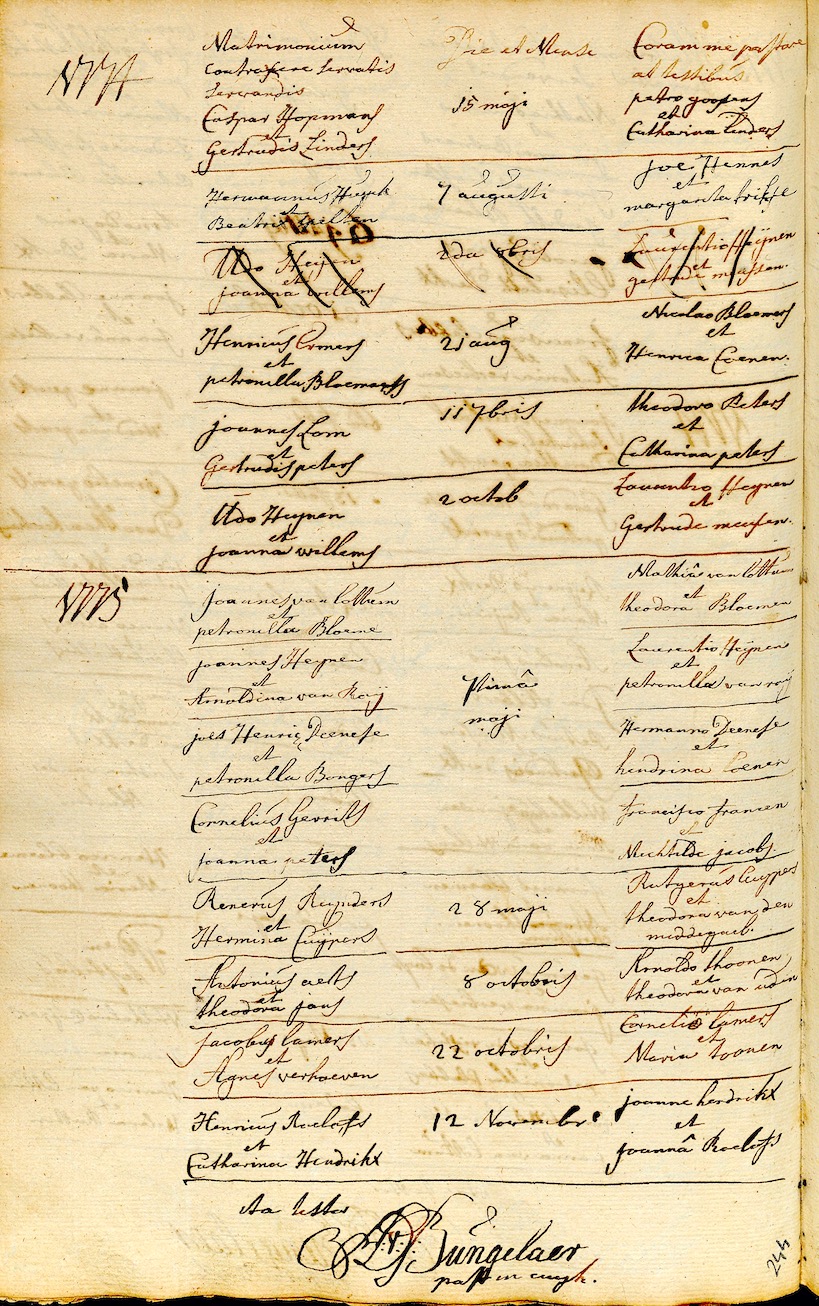 1774
Matrimonium
contraxere servatis
servandis
Caspar Hopmans
et
Gertrudis Linders
Die et Mense
15 maji
Coram me pastore
ac testibus
petro goosens
et
Catharina Linders
Hermannus Huyck
et
Beatrix
7 augusti
joe Hennes
et
margarita
Udo Heijnen
et
joanna willems
2da 8bris
Laurentio Heijnen
et
gertrude meussen
Henricus Ermers
et
petronilla Bloemarss
21 aug
Nicolao Bloemers
et
Henrica Coenen.
joannes Lom
et
Gertrudis peters
11 7bris
theodoro Peters
et
Catharina peters
Udo Heynen
et
joanna willems
2 octob
Laurentio Heynen
et
Gertrude meusen.
1775
joannes van lottum
et
petronilla Bloeme
Mathiâ van lottum
et
theodora Bloemen
joannes Heynen
et
Arnoldina van Raij
Laurentio Heijnen
et
petronilla van roij
Primâ
maji
joes Henric Deenese
et
petronilla Bongers
Hermanno Deenese
et
hendrina Coenen
Cornelius Gevrits
et
joanna peters
francisco fransen
et
Mechtilde jacobs.
Renerus Ruynders
et
Hermina Cuijpers
28 maji
Rutgerus Cuypers
et
theodora van den
middegael.
Antonius aerts
et
theodora jans
8 octobris
Arnoldo thoonen
et
theodora van uden
jacobus lamers
et
Agnes verhoeven
22 octobris
Cornelio lamers
et
Maria toonen
Henricus Roelofs
et
Catharina Hendrikx
12 Novembr
joanne hendrikx
et
joannâ Roelofs
ita testor
Bungelaer
past in cuyk.
244